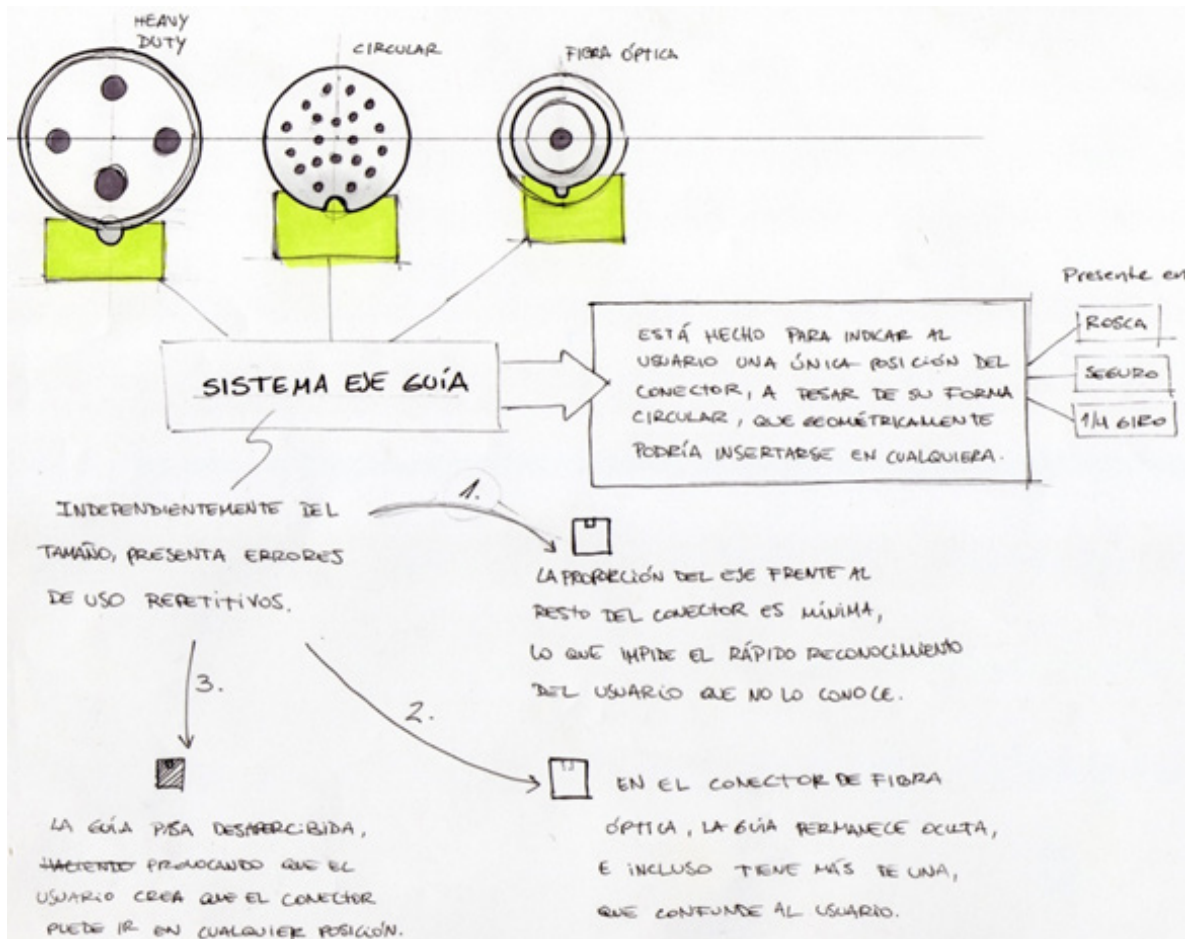 HEAVY
DUTY
CIRCULAR
FIBRA ÓPTICA
SISTEMA EJE GUÍA
ESTÁ HECHO PARA INDICAR AL
USUARIO UNA ÚNICA POSICIÓN DEL
CONECTOR, A PESAR DE SU FORMA
CIRCULAR, QUE GEOMÉTRICAMENTE
PODRÍA INSERTARSE EN CUALQUIERA.
Presente en
ROSCA
SEGURO
1/4 GIRO
INDEPENDIENTEMENTE DEL
TAMAÑO, PRESENTA ERRORES
DE USO REPETITIVOS.
1.
LA PROPORCIÓN DEL EJE FRENTE AL
RESTO DEL CONECTOR ES MÍNIMA,
LO QUE IMPIDE EL RÁPIDO RECONOCIMIENTO
DEL USUARIO QUE NO LO CONOCE.
2.
EN EL CONECTOR DE FIBRA
ÓPTICA, LA GUÍA PERMANECE OCULTA,
E INCLUSO TIENE MÁS DE UNA,
QUE CONFUNDE AL USUARIO.
3.
LA GUÍA PASA DESAPERCIBIDA,
HACIENDO PROVOCANDO QUE EL
USUARIO CREA QUE EL CONECTOR
PUEDE IR EN CUALQUIER POSICIÓN.